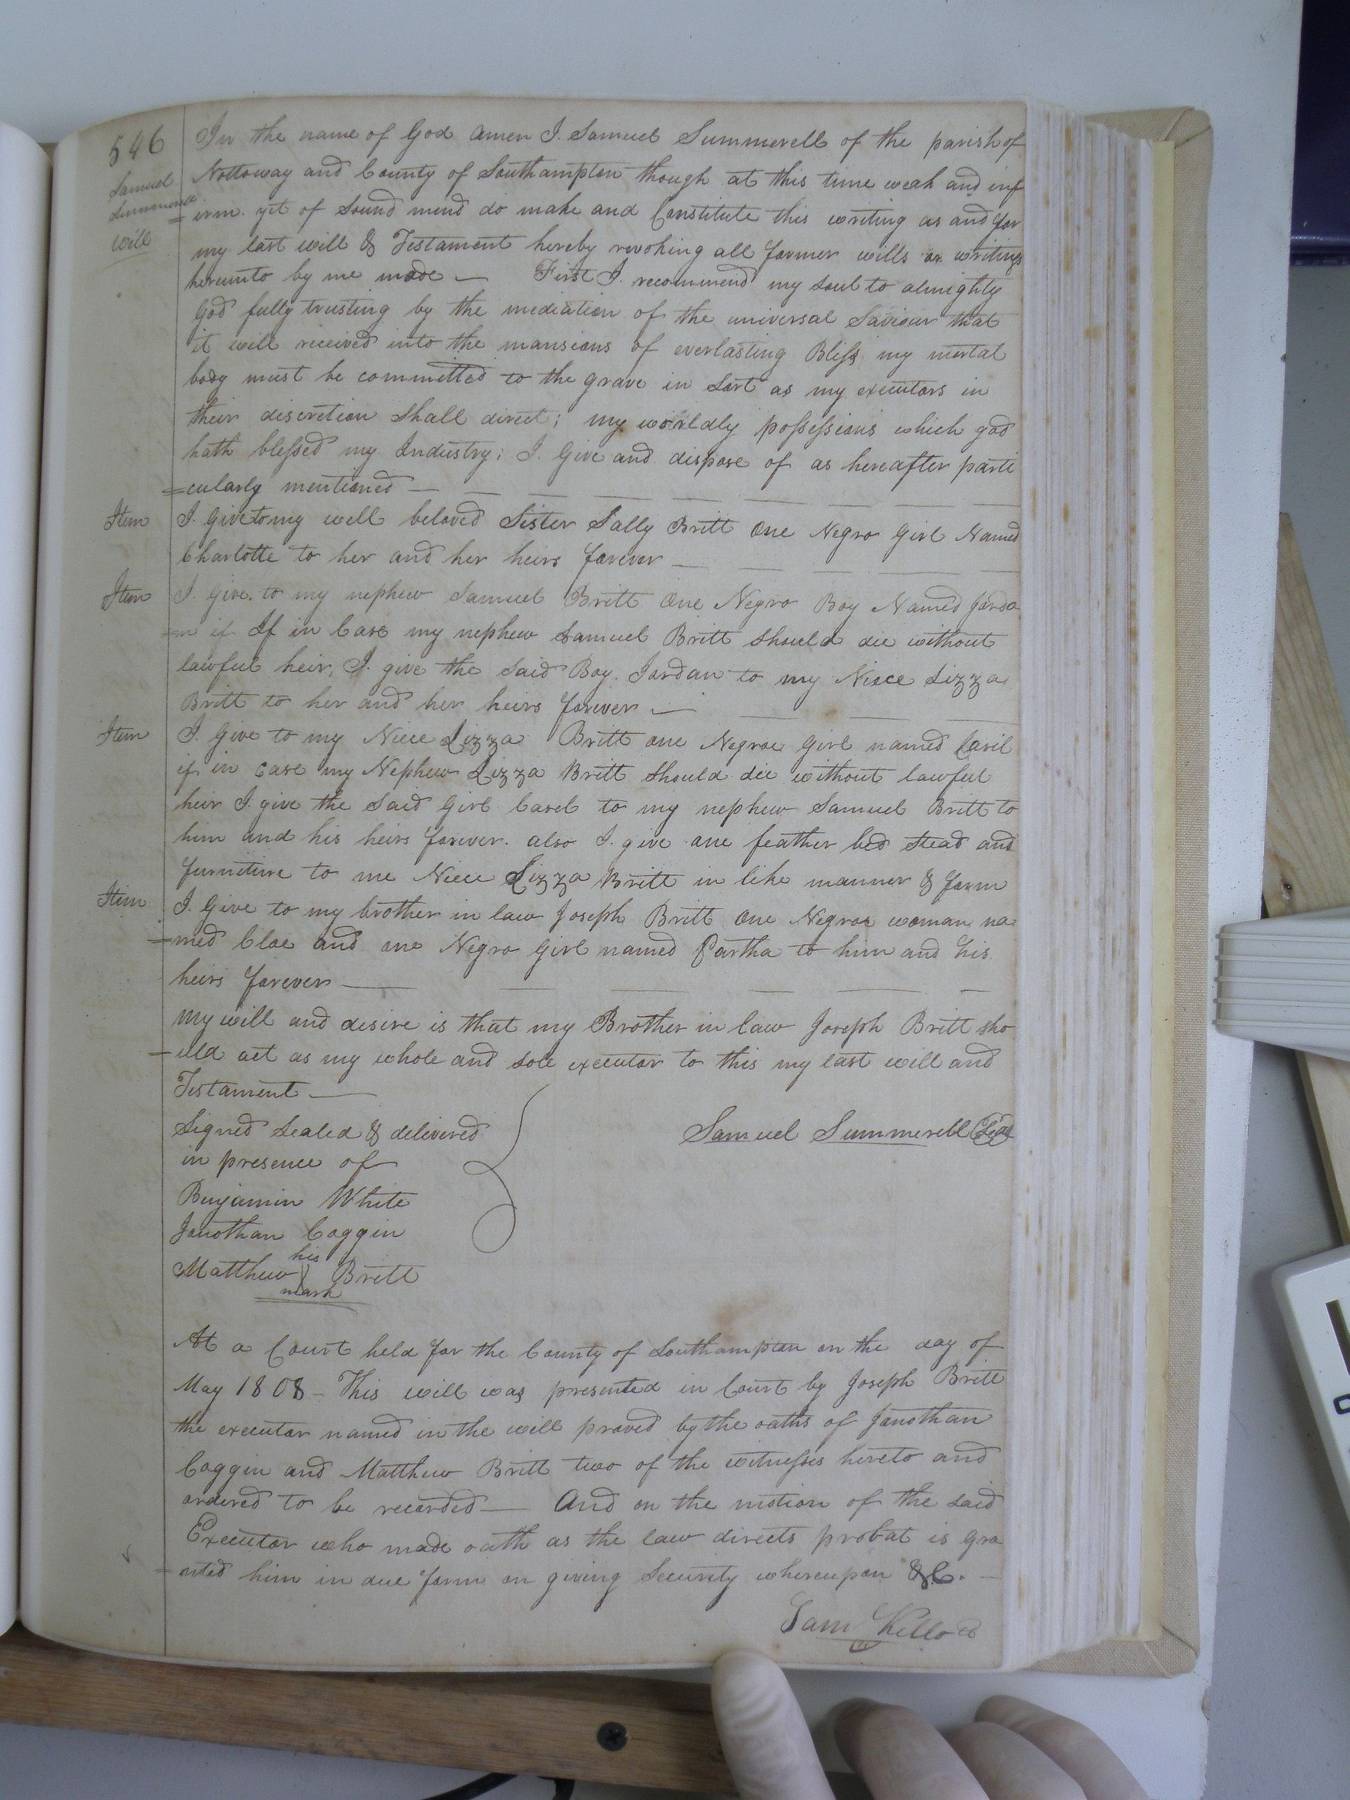 546
Samuel
Summerell
will
In the name of God amen I. Samuel Summerell of the parish of
Nottoway and County of Southampton though at this time weak and inf
=irm. yet of Sound mind do make and Constitute this writing as and for
my last will & Testament hereby revoking all former wills or writings
hereunto by me made — First I. recommend my soul to almighty
God fully trusting by the mediation of the universal Saviour that
it will received into the mansions of everlasting Bliss my mortal
body must be committed to the grave in Sort as my executors in
their discretion Shall direct; my worldly possessions which god
hath blessed my Industry; I. Give and dispose of as hereafter parti
=cularly mentioned —
Item I. Give to my well beloved Sister Sally Britt One Negro Girl Named
Charlotte to her and her heirs forever —
Item I. Give. to my nephew Samuel Britt One Negro Boy Named Jorda
=n if If in Case my nephew Samuel Britt Should die without
lawful heir, I. give the Said Boy. Jordan to my Niece Lizza
Britt to her and her heirs forever —
Item I. Give to my Niece Lizza Britt one Negroe Girl named Casil
if in Case my Nephew Lizza Britt Should die without lawful
heir I. give the Said Girl Casel to my nephew Samuel Britt to
him and his heirs forever. also I. give one feather bed Stead and
furniture to me Niece Lizza Britt in like manner & form
Item I. Give to my brother in law Joseph Britt One Negroe woman na
=med Cloe and one Negro Girl named Partha to him and his
heirs forever —
My will and desire is that my Brother in law Joseph Britt sho
=uld act as my whole and sole executor to this my last will and
Testament —
Signed Sealed & delivered
in presence of
Samuel Summerell (Seal)
Benjamin White
Jonothan Coggin
his
Matthew Britt
mark
At a Court held for the County of Southampton on the day of
May 1808 — This will was presented in Court by Joseph Britt
the executor named in the will proved by the oaths of Jonothan
Coggin and Matthew Britt two of the witnesses hereto and
ordered to be recorded — And on the motion of the said
Executor who made oath as the law directs probat is gra
=nted him in due form on giving Security whereupon &C. —
Sam Kello